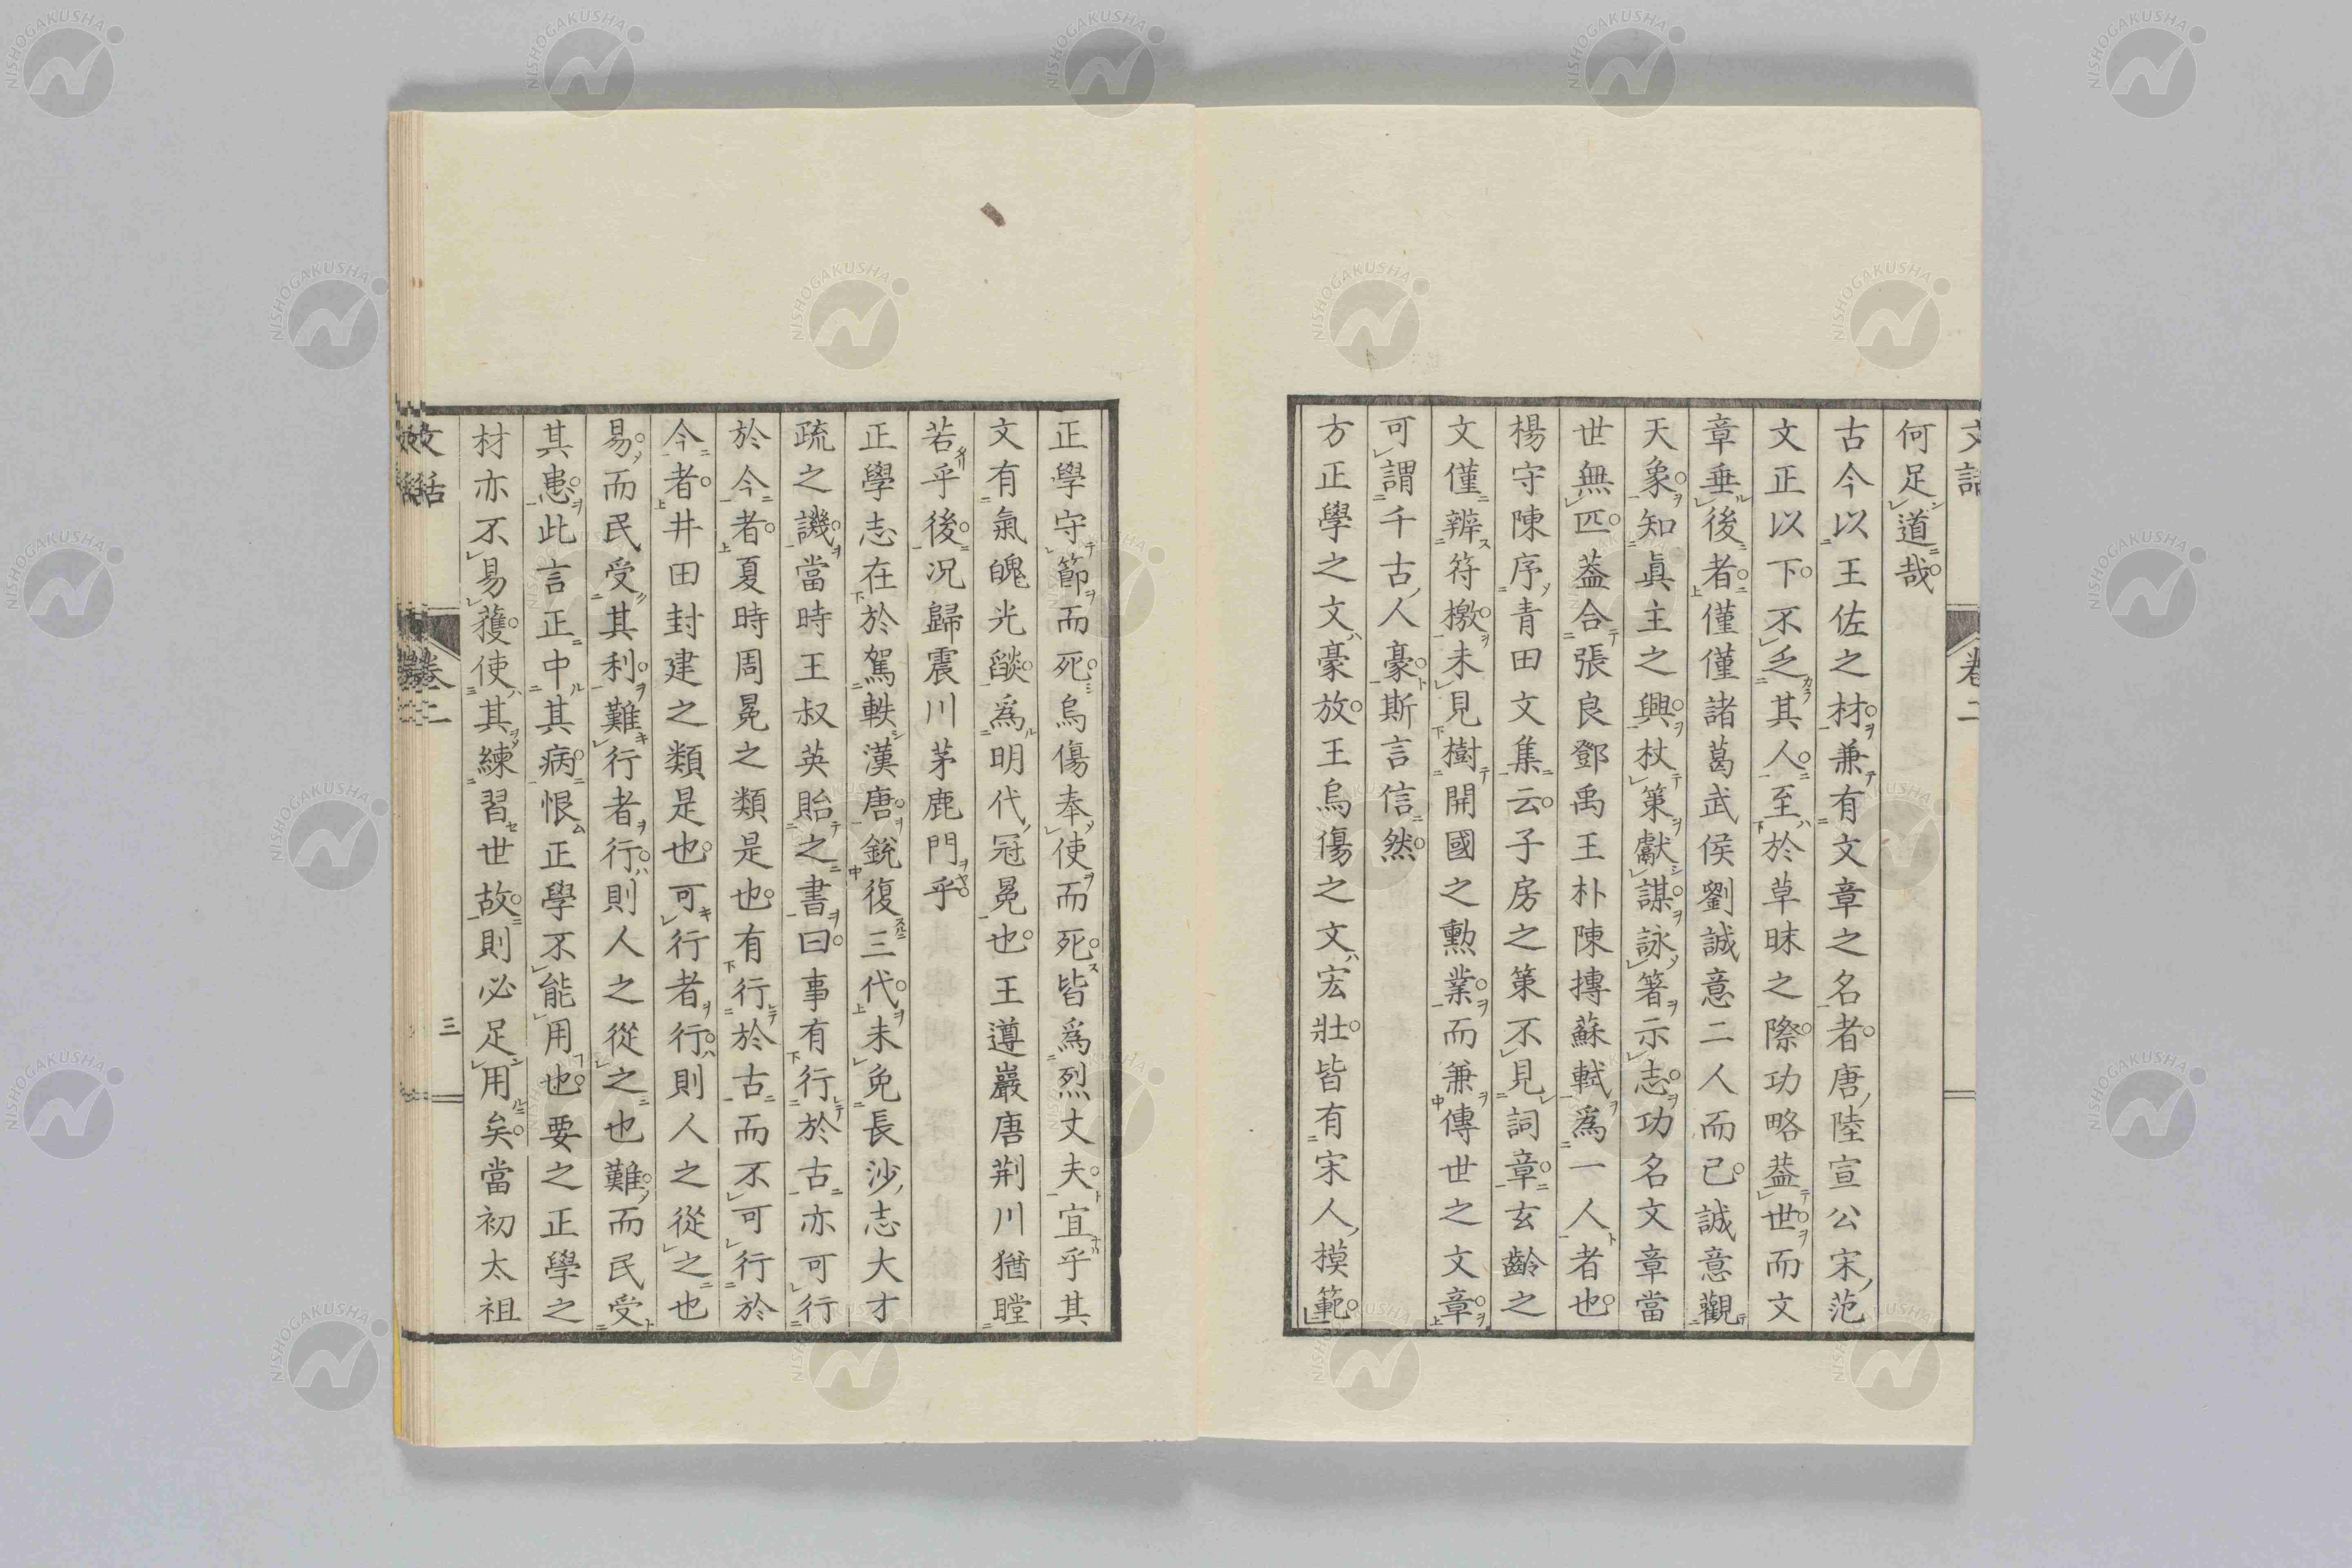 何足道哉
古今以王佐之材兼有文章之名者唐陸宣公宋范
文正以下不乏其人至於草昧之際功略蓋世而文
章垂後者僅僅諸葛武侯劉誠意二人而已誠意觀
天象知眞主之興杖策獻謀詠箸示志功名文章當
世無匹蓋合張良鄧禹王朴陳摶蘇軾爲一人者也
楊守陳序青田文集云子房之策不見詞章玄齡之
文僅辨符檄未見樹開國之勲業而兼傳世之文章
可謂千古人豪斯言信然
方正學之文豪放王烏傷之文宏壯皆有宋人摸範
正學守節而死烏傷奉使而死皆爲烈丈夫宜乎其
文有氣魄光燄爲明代冠冕也王遵巖唐荆川猶瞠
若乎後况歸震川茅鹿門乎
正學志在於駕軼漢唐銳復三代未免長沙志大才
疏之譏當時王叔英貽之書曰事有行於古亦可行
於今者夏時周冕之類是也有行於古而不可行於
今者井田封建之類是也可行者行則人之從之也
易而民受其利難行者行則人之從之也難而民受
其患此言正中其病恨正學不能用也要之正學之
材亦不易獲使其練習世故則必足用矣當初太祖
文話
卷二
三
NISHOGAKUSHA